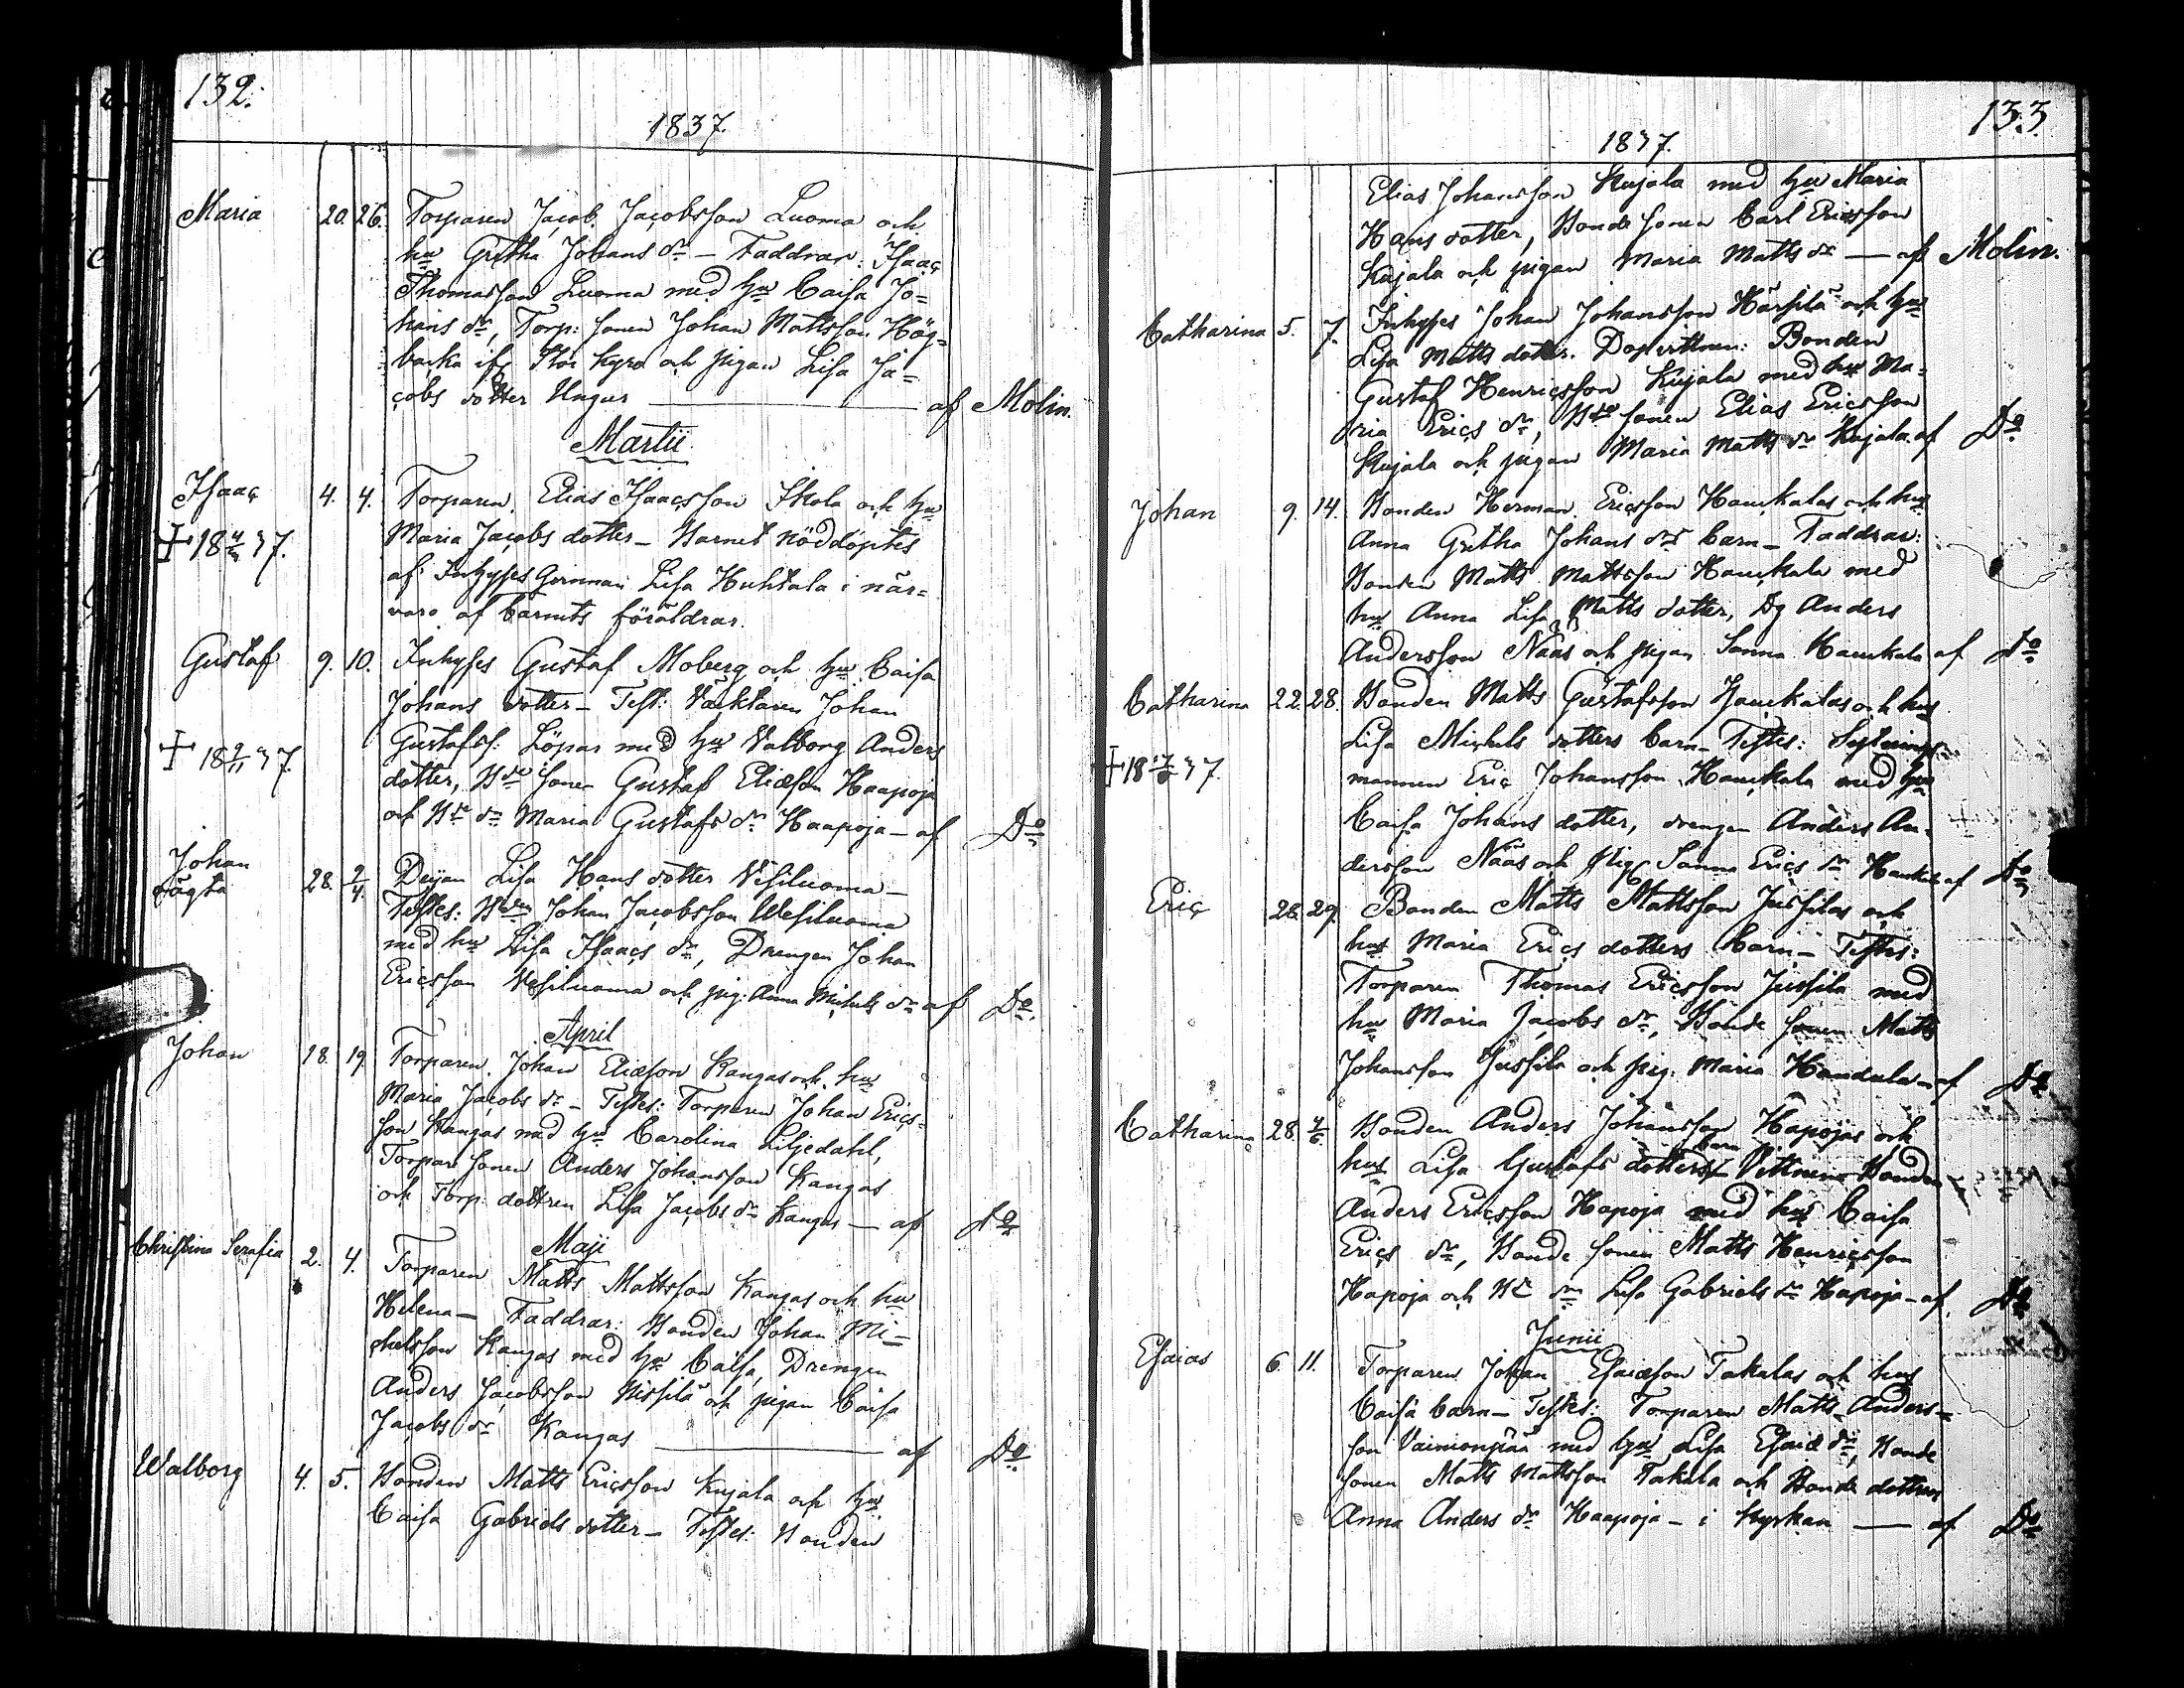 132.
1837.
Maria 20. 26. Torparen Jacob Jacobsson Luoma och
hu Gretha Johans dr — Faddrar: Isaac
Thomasson Luoma med hu Caisa Jo=
hans dr, Torp: sonen Johan Mattsson Hög=
backa ifr Stor Kyro och pigan Lisa Ja=
cobs dotter Ungus — af Molin.
Martii
Isaac 4. 4. Torparen Elias Isaacsson Skola och hu
Maria Jacobs dotter — Barnet nöddöptes
+ 18 4/3 37. af Inhyses Qvinnan Lisa Huhtala i när=
varo af barnets föräldrar.
Gustaf 9. 10. Inhyses Gustaf Moberg och hu Caisa
Johans dotter — Test: Väcktaren Johan
+ 18 9/11 37. Gustafss: Löpar med hu Valborg Anders
dotter, Bde sonen Gustaf Eliæson Haapoja
och Bde dr Maria Gustafs dr Haapoja — af Do
Johan 28. 2/4. Deijan Lisa Hans dotter Vesiluoma —
oägta Testes: Bden Johan Jacobsson Wesiluoma
med hu Lisa Isaacs dr, Drengen Johan
Ericsson Vesiluoma och pig: Anna Michels dr af Do.
April
Johan 18. 19. Torparen Johan Eliæson Kangas och hu
Maria Jacobs dr — Testes: Torparen Johan Erics=
son Kangas med hu Carolina Liljedahl,
Torpare sonen Anders Johansson Kangas
och Torp. dottren Lisa Jacobs dr Kangas — af Do
Maji
Christina Serafia 2. 4. Torparen Matts Mattsson Kangas och hu
Helena — Faddrar: Bonden Johan Mi=
chelsson Kangas med hu Caisa, Drengen
Anders Jacobsson Nissilä och pigan Caisa
Jacobs dr Kangas — af Do
Walborg 4. 5. Bonden Matts Ericsson Kujala och hu
Caisa Gabriels dotter — Testes: Bonden
133.
1837.
Elias Johansson Kujala med hu Maria
Hans dotter, Bonde sonen Carl Ericsson
Kujala och pigan Maria Matts dr — af Molin.
Catharina 5. 7. Inhyses Johan Johansson Härsilä och hu
Lisa Matts dotter. Dopvittnen: Bonden
Gustaf Henricsson Kujala med hu Ma=
ria Erics dr, Bde sonen Elias Ericsson
Kujala och pigan Maria Matts dr Kujala af Do
Johan 9. 14. Bonden Herman Ericsson Haukalas och hus
Anna Gretha Johans drs barn — Faddrar:
Bonden Matts Mattsson Haukala med
hu Anna Lisa Matts dotter, Dg Anders
Andersson Nääs och pigan Sanna Haukala af Do
Catharina 22. 28. Bonden Matts Gustafsson Haukalas och hus
Lisa Michels dotters barn — Testes:
+ 18 37. mannen Eric Johansson Haukala med hu
Caisa Johans dotter, drengen Anders An=
dersson Nääs och Pig Sanna Erics dr Haukala af Do
Eric 28. 29. Bonden Matts Mattsson Jussilas och
hus Maria Erics dotters barn — Testes:
Torparen Thomas Ericsson Jussila med
hu Maria Jacobs dr, Bonde sonen Matts
Johansson Jussila och pig: Maria Handula — af Do
Catharina 28. 4/6. Bonden Anders Johansson Hapojas och
hus Lisa Gustafs dotters barn — Vittnen Bonden
Anders Ericsson Hapoja med hu Caisa
Erics dr, Bonde sonen Matts Henricsson
Hapoja och Bde dr Lisa Gabriels dr Hapoja — af Do
Junii
Esaias 6. 11. Torparen Johan Esaiæson Takalas och hus
Caisa barn — Testes: Torparen Matts Anders=
son Vainionpää med hu Lisa Esaiæ dr, Bonde
sonen Matts Mattsson Takala och Bonde dottren
Anna Anders dr Haapoja — i kyrkan — af Do